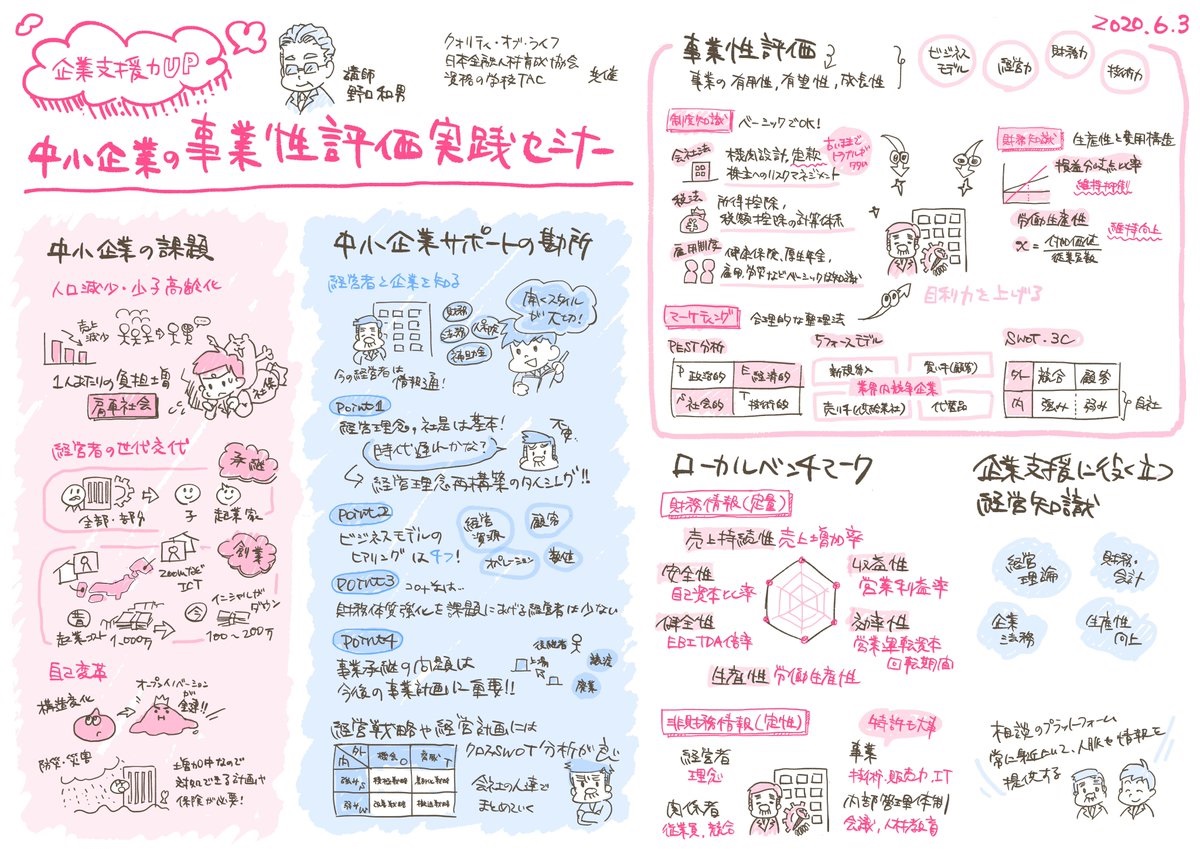 企業支援力UP
講師
野口和男
クオリティ・オブ・ライフ
日本金融人材育成協会
資格の学校TAC
主催
中小企業の事業性評価実践セミナー
2020.6.3
中小企業の課題
人口減少・少子高齢化
売上
減少
1人あたりの負担増
肩車社会
社保
経営者の世代交代
承継
全部・部分
子
起業家
創業
zoomなど
ICT
イニシャルが
ダウン
昔
起業コスト
1,000万
今
100〜200万
自己変革
構造変化
オープンイノベーション
が
鍵!!
防災・災害
土曽加中なので
対処できる計画や
保険が必要!
中小企業サポートの勘所
経営者と企業を知る
財務
法務
人事
補助金
聞くスタイル
が大切!
今の経営者は
情報通!
Point1
経営理念,社是は基本!
時代遅れかな?
不変
経営理念再構築のタイミング!!
Point2
ビジネスモデルの
ヒアリングは4つ!
経営
資源
顧客
オペレーション
Point3
財務体質強化を課題にあげる経営者は少ない
Point4
事業承継の問題は
今後の事業計画に重要!!
後継者
上場
譲渡
廃業
経営戦略や経営計画には
クロスSWOT分析が良い
外
内
機会O
脅威T
強みS
積極戦略
差別化戦略
弱みW
改善戦略
撤退戦略
会社の人達で
まとめていく
事業性評価
事業の有用性,有望性,成長性
ビジネス
モデル
経営力
財務力
技術力
制度知識
ベーシックでOK!
会社法
機関設計,定款
株主へのリスクマネジメント
古いままで
トラブルが
多い
税法
所得控除,
税額控除の計算体系
雇用制度
健康保険,厚生年金,
雇用,労災などベーシックな知識
財務知識
生産性と費用構造
損益分岐点比率
維持抑制
労働生産性
維持向上
α=付加価値
従業員数
目利力を上げる
マーケティング
合理的な整理法
PEST分析
P 政治的
E 経済的
S 社会的
T 技術的
5フォースモデル
新規参入
買い手(顧客)
業界内競争企業
売り手(供給業社)
代替品
SWOT・3C
外
競合
顧客
内
強み
弱み
自社
ローカルベンチマーク
財務情報(定量)
売上持続性 売上増加率
安全性
自己資本比率
収益性
営業利益率
健全性
EBITDA倍率
効率性
営業運転資本
回転期間
生産性 労働生産性
非財務情報(定性)
経営者
理念
関係者
従業員,競合
特許も大事
事業
技術,販売力,IT
内部管理体制
会議,人材教育
企業支援に役立つ
経営知識
経営
理論
財務・
会計
企業
法務
生産性
向上
相談のプラットフォーム
常に身近にいて、人脈も情報も
提供する